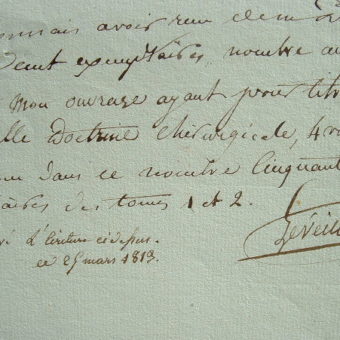 avoir reçu
Cent exemplaires, nombre
Mon ouvrage ayant pour titre
Doctrine chirurgicale, 4
dans ce nombre Cinquante
des tomes 1 et 2.
L'écriture ci-dessus.
ce 25 mars 1813.